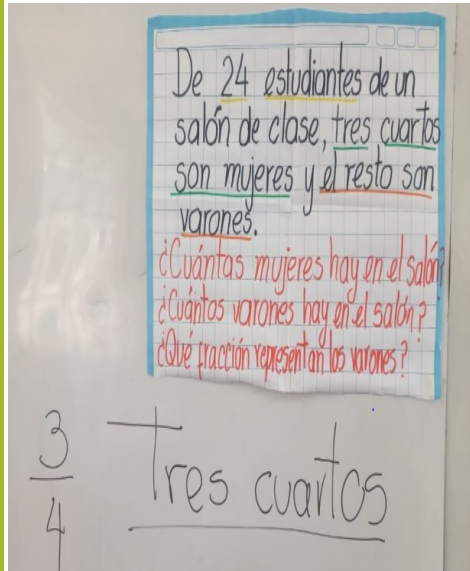 De 24 estudiantes de un
salón de clase, tres cuartos
son mujeres y el resto son
varones.
¿Cuántas mujeres hay en el salón?
¿Cuántos varones hay en el salón?
¿Qué fracción representan los varones?
3
4
Tres cuartos